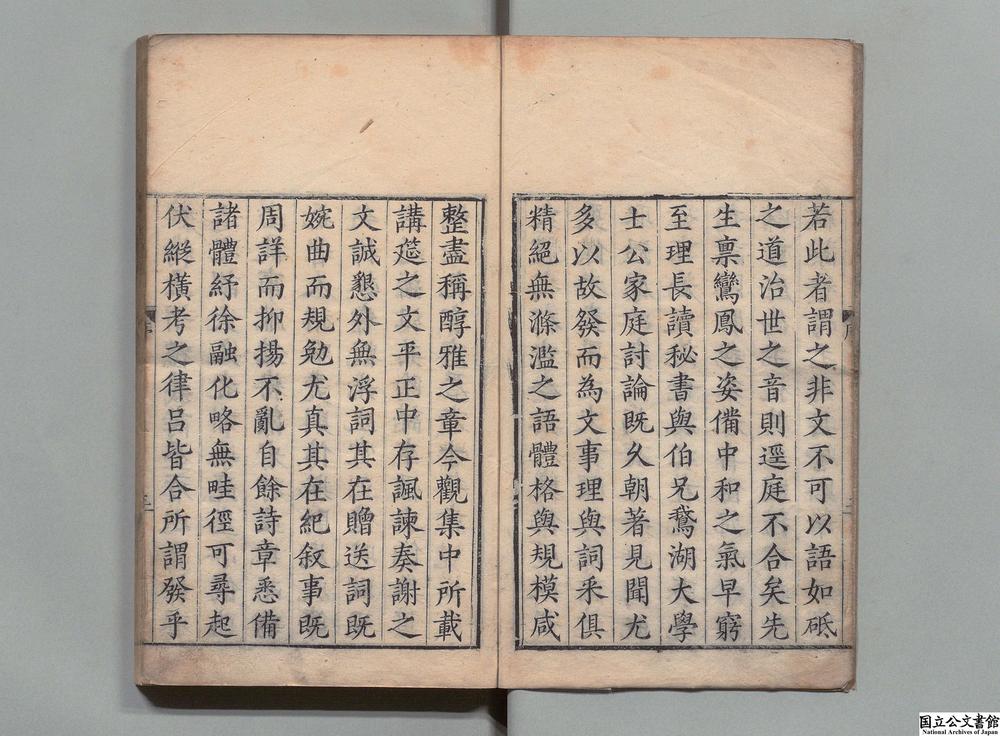 若此者謂之非文不可以語如砥
之道治世之音則逕庭不合矣先
生禀鸞鳳之姿備中和之氣早窮
至理長讀秘書與伯兄鵞湖大學
士公家庭討論既久朝著見聞尤
多以故發而為文事理與詞釆俱
精絕無滌濫之語體格與規模咸
整盡稱醇雅之章今觀集中所載
講筵之文平正中存諷諫奏謝之
文誠懇外無浮詞其在贈送詞既
婉曲而規勉尤真其在紀叙事既
周詳而抑揚不亂自餘詩章悉備
諸體紓徐融化略無畦徑可尋起
伏縱橫考之律呂皆合所謂發乎
国立公文書館
National Archives of Japan